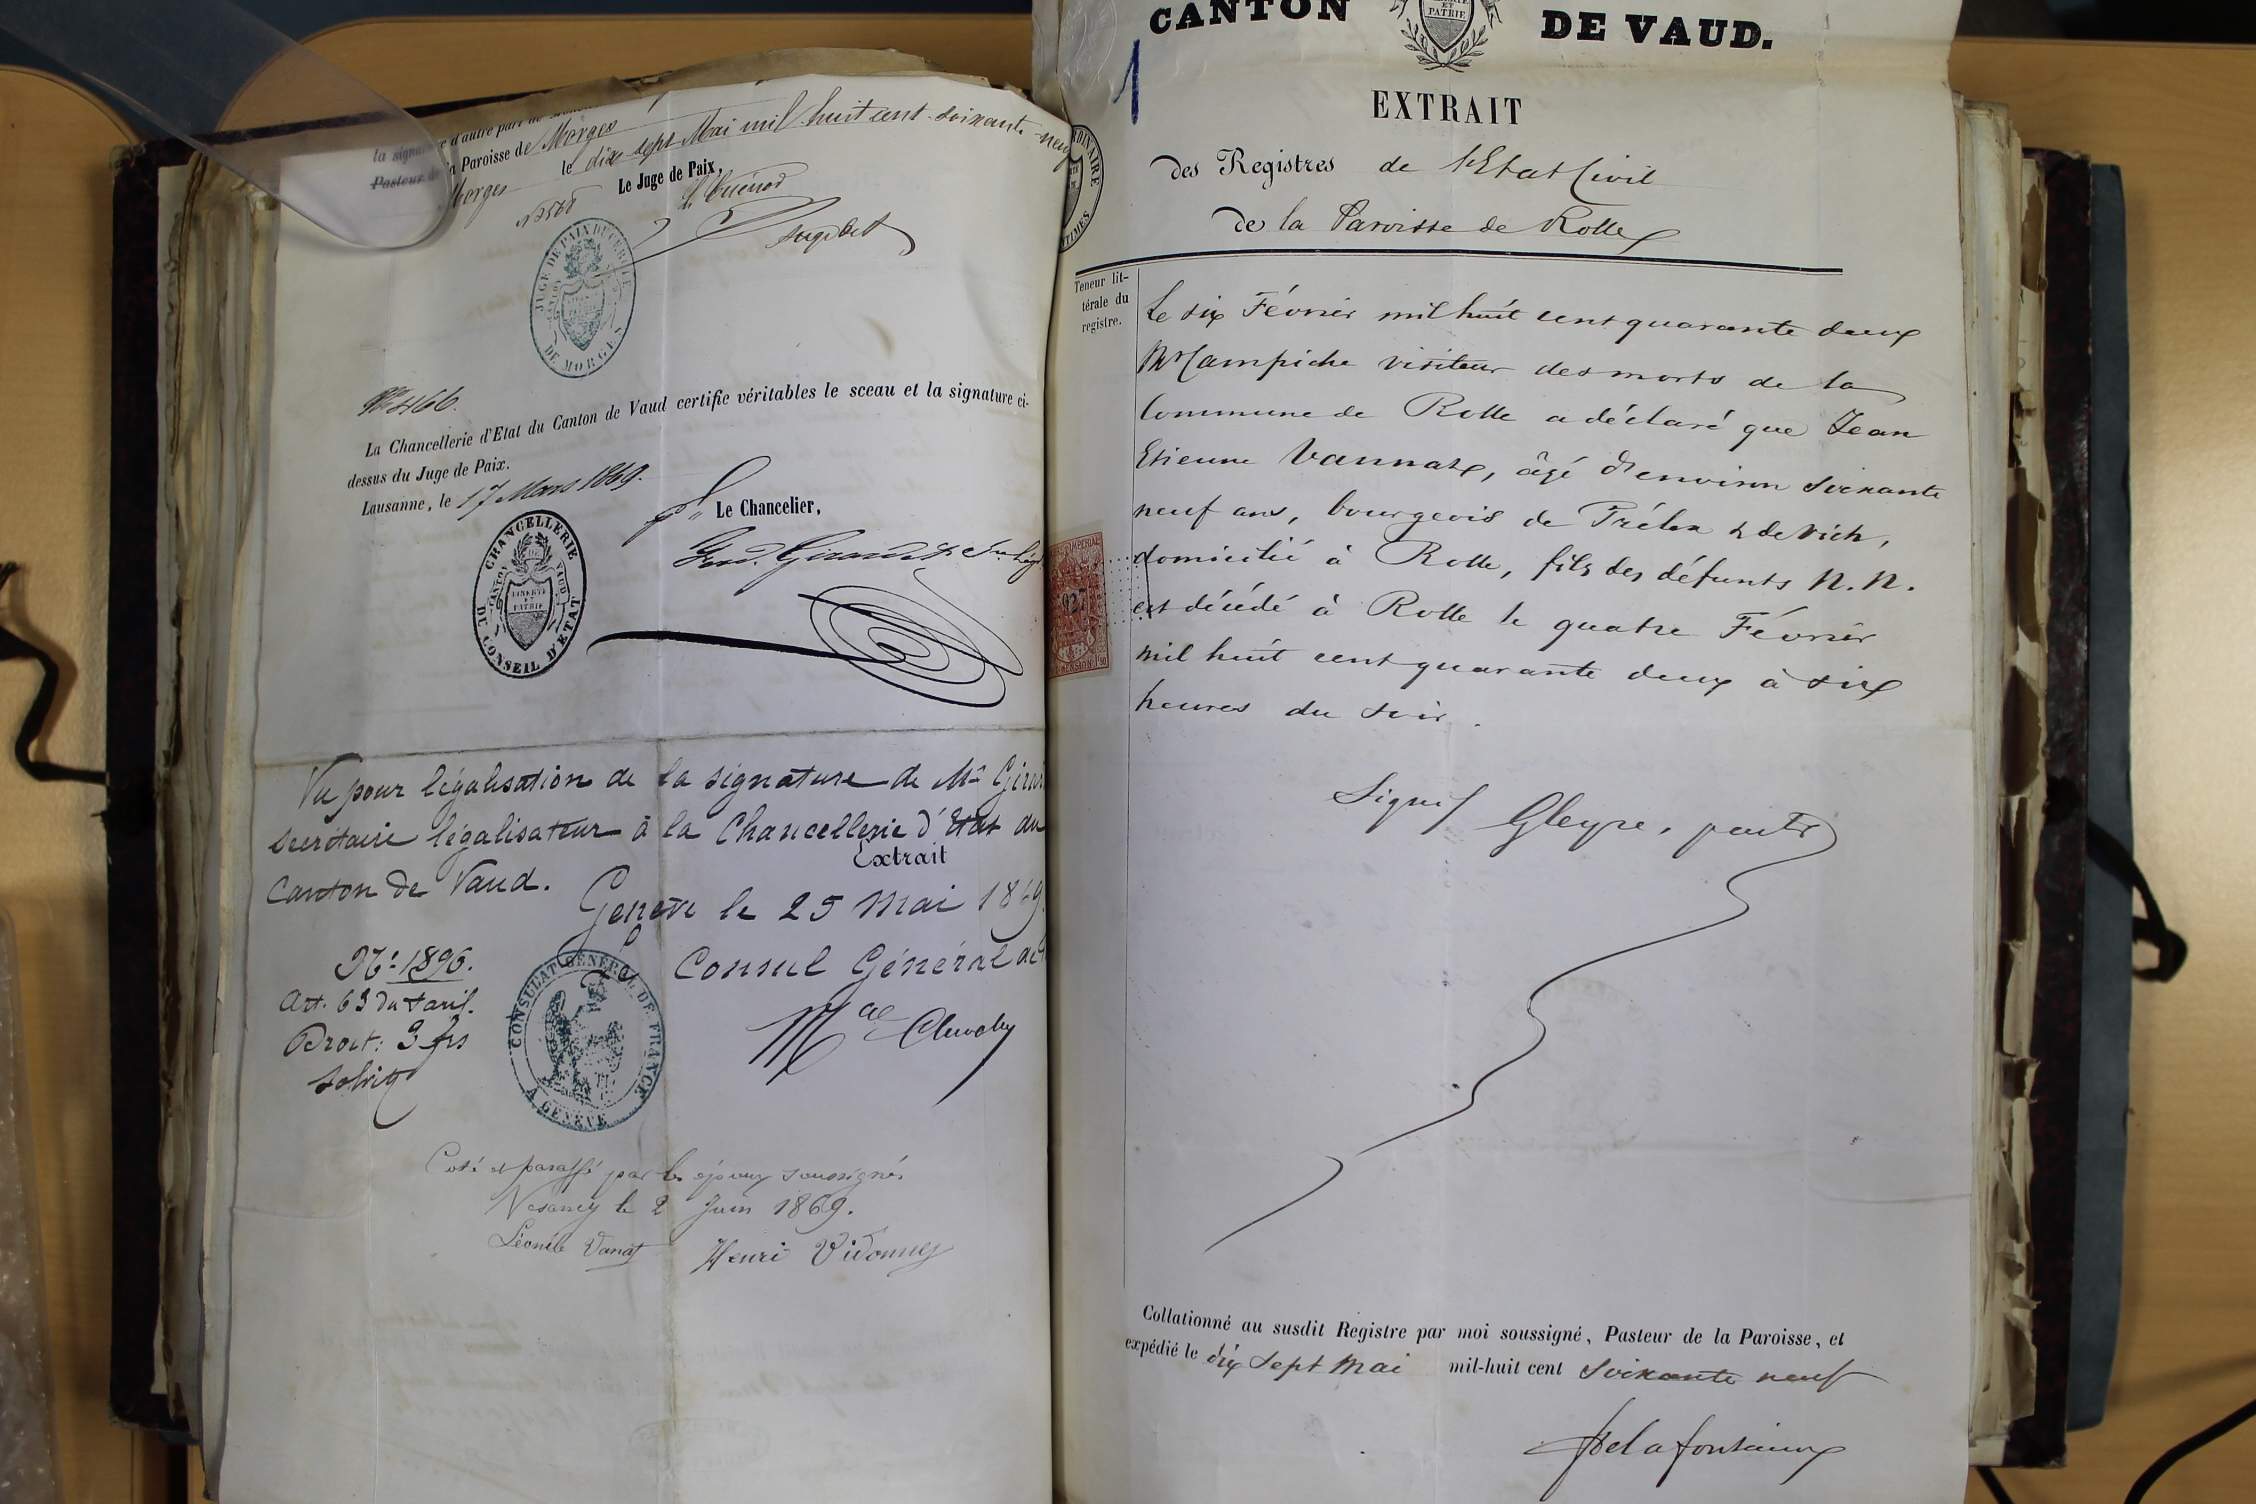 la signature d'autre part de
Pasteur de la Paroisse de Morges
Morges le dix-sept Mai mil huit cent soixante-neuf
Le Juge de Paix,
JUGE DE PAIX DU CERCLE
DE MORGES
CANTON
No 466.
La Chancellerie d'Etat du Canton de Vaud certifie véritables le sceau et la signature ci-
dessus du Juge de Paix.
Lausanne, le 17 Mars 1869.
Le Chancelier,
CHANCELLERIE
DU CONSEIL D'ETAT
CANTON DE VAUD
LIBERTÉ ET PATRIE
Vu pour légalisation de la signature de Mr Girar
secrétaire légalisateur à la Chancellerie d'Etat du
Extrait
Canton de Vaud.
Genève le 25 Mai 1869
Consul Général de
No 1896.
Art. 63 du tarif.
Droit: 3 frs
CONSULAT GÉNÉRAL DE FRANCE
A GENÈVE
Coté et paraffé par les époux soussignés
Vesancy le 2 Juin 1869.
Léonile Vanat Henri Vidonney
CANTON DE VAUD.
PATRIE
1
EXTRAIT
des Registres de l'Etat Civil
de la Paroisse de Rolle
Teneur lit-
térale du
registre.
Le six Février mil huit cent quarante deux
Mr Campiche visiteur des morts de la
Commune de Rolle a déclaré que Jean
Etienne Vannaz, âgé d'environ soixante
neuf ans, bourgeois de Trélex & de Vich,
domicilié à Rolle, fils des défunts N. N.
est décédé à Rolle le quatre Février
mil huit cent quarante deux à six
heures du soir.
927
Signé Gleyre, pastr
Collationné au susdit Registre par moi soussigné, Pasteur de la Paroisse, et
expédié le dix sept Mai mil-huit cent soixante neuf
Delafontaine